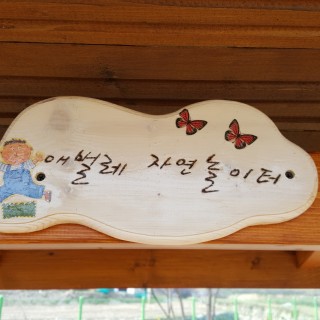 애벌레 자연놀이터